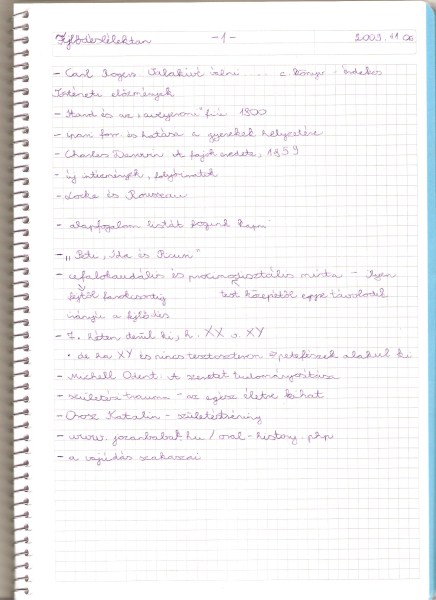 Fejlődéslélektan -1- 2009. 11. 06
- Carl Rogers Valakivé válni ... c. könyv - érdekes
Történeti előzmények
- Itard és az „aveyroni” fiú 1800
- ipari forr. és hatása a gyerekek helyzetére
- Charles Darwin A fajok eredete, 1859
- új intézmények, folyóiratok
- Locke és Rousseau
- alapfogalom listát fogunk kapni
- „ Ida és "
- cefalokaudális és proximodisztális minta - ilyen
fejtől farokcsontig test közepétől egyre távolodó
irányú a fejlődés
- 7. héten derül ki, h. XX v. XY
• de ha XY és nincs tesztoszteron petefészek alakul ki
- Michell Odent. A szeretet tudományosítása
- születési trauma - az egész életre kihat
- Orosz Katalin - születéstréning
- www.jozanbabak.hu/oral-history.php
- a vajúdás szakaszai